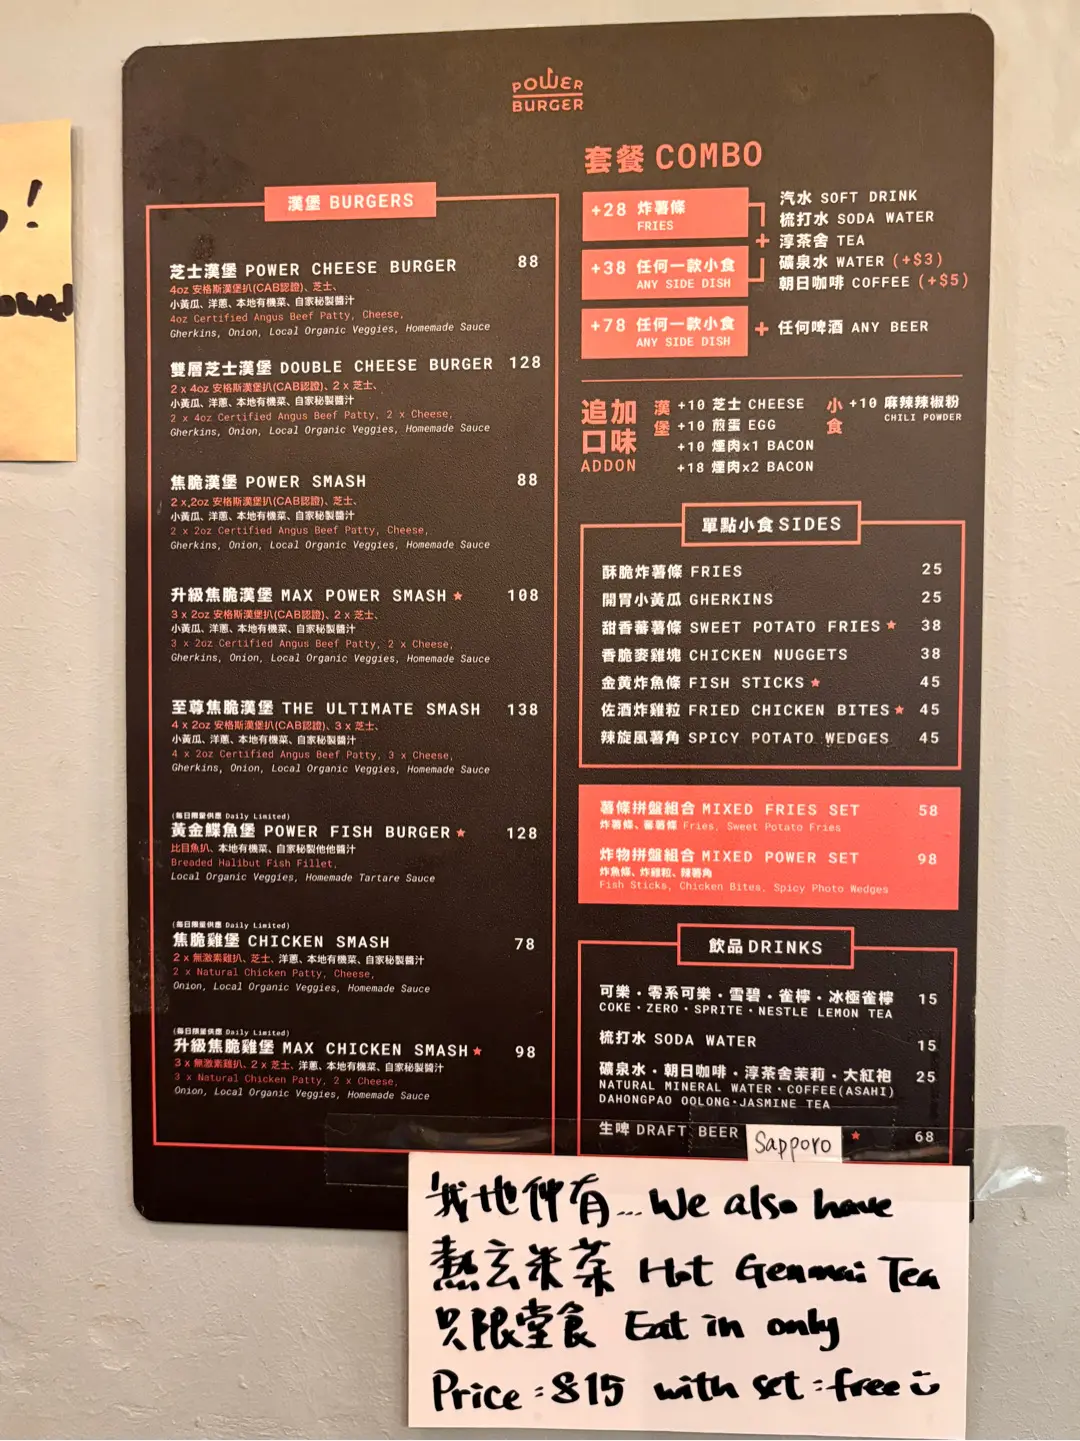 POWER
BURGER
套餐 COMBO
+28 炸薯條
FRIES
+38 任何一款小食
ANY SIDE DISH
汽水 SOFT DRINK
梳打水 SODA WATER
+ 淳茶舍 TEA
礦泉水 WATER (+$3)
朝日咖啡 COFFEE (+$5)
+78 任何一款小食
ANY SIDE DISH
+ 任何啤酒 ANY BEER
追加
口味
ADDON
漢堡
+10 芝士 CHEESE
+10 煎蛋 EGG
+10 煙肉x1 BACON
+18 煙肉x2 BACON
小食
+10 麻辣辣椒粉
CHILI POWDER
漢堡 BURGERS
芝士漢堡 POWER CHEESE BURGER 88
4oz 安格斯漢堡扒(CAB認證)、芝士、
小黃瓜、洋蔥、本地有機菜、自家秘製醬汁
4oz Certified Angus Beef Patty, Cheese,
Gherkins, Onion, Local Organic Veggies, Homemade Sauce
雙層芝士漢堡 DOUBLE CHEESE BURGER 128
2 x 4oz 安格斯漢堡扒(CAB認證)、2 x 芝士、
小黃瓜、洋蔥、本地有機菜、自家秘製醬汁
2 x 4oz Certified Angus Beef Patty, 2 x Cheese,
Gherkins, Onion, Local Organic Veggies, Homemade Sauce
焦脆漢堡 POWER SMASH 88
2 x 2oz 安格斯漢堡扒(CAB認證)、芝士、
小黃瓜、洋蔥、本地有機菜、自家秘製醬汁
2 x 2oz Certified Angus Beef Patty, Cheese,
Gherkins, Onion, Local Organic Veggies, Homemade Sauce
升級焦脆漢堡 MAX POWER SMASH ★ 108
3 x 2oz 安格斯漢堡扒(CAB認證)、2 x 芝士、
小黃瓜、洋蔥、本地有機菜、自家秘製醬汁
3 x 2oz Certified Angus Beef Patty, 2 x Cheese,
Gherkins, Onion, Local Organic Veggies, Homemade Sauce
至尊焦脆漢堡 THE ULTIMATE SMASH 138
4 x 2oz 安格斯漢堡扒(CAB認證)、3 x 芝士、
小黃瓜、洋蔥、本地有機菜、自家秘製醬汁
4 x 2oz Certified Angus Beef Patty, 3 x Cheese,
Gherkins, Onion, Local Organic Veggies, Homemade Sauce
(每日限量供應 Daily Limited)
黃金鰈魚堡 POWER FISH BURGER ★ 128
比目魚扒、本地有機菜、自家秘製他他醬汁
Breaded Halibut Fish Fillet,
Local Organic Veggies, Homemade Tartare Sauce
(每日限量供應 Daily Limited)
焦脆雞堡 CHICKEN SMASH 78
2 x 無激素雞扒、芝士、洋蔥、本地有機菜、自家秘製醬汁
2 x Natural Chicken Patty, Cheese,
Onion, Local Organic Veggies, Homemade Sauce
(每日限量供應 Daily Limited)
升級焦脆雞堡 MAX CHICKEN SMASH ★ 98
3 x 無激素雞扒、2 x 芝士、洋蔥、本地有機菜、自家秘製醬汁
3 x Natural Chicken Patty, 2 x Cheese,
Onion, Local Organic Veggies, Homemade Sauce
單點小食 SIDES
酥脆炸薯條 FRIES 25
開胃小黃瓜 GHERKINS 25
甜香蕃薯條 SWEET POTATO FRIES ★ 38
香脆麥雞塊 CHICKEN NUGGETS 38
金黃炸魚條 FISH STICKS ★ 45
佐酒炸雞粒 FRIED CHICKEN BITES ★ 45
辣旋風薯角 SPICY POTATO WEDGES 45
薯條拼盤組合 MIXED FRIES SET 58
炸薯條、蕃薯條 Fries, Sweet Potato Fries
炸物拼盤組合 MIXED POWER SET 98
炸魚條、炸雞粒、辣薯角
Fish Sticks, Chicken Bites, Spicy Photo Wedges
飲品 DRINKS
可樂・零系可樂・雪碧・雀檸・冰極雀檸 15
COKE・ZERO・SPRITE・NESTLE LEMON TEA
梳打水 SODA WATER 15
礦泉水・朝日咖啡・淳茶舍茉莉・大紅袍 25
NATURAL MINERAL WATER・COFFEE(ASAHI)
DAHONGPAO OOLONG・JASMINE TEA
生啤 DRAFT BEER Sapporo ★ 68
我地仲有... We also have
熱玄米茶 Hot Genmai Tea
只限堂食 Eat in only
Price : $15 with set : free